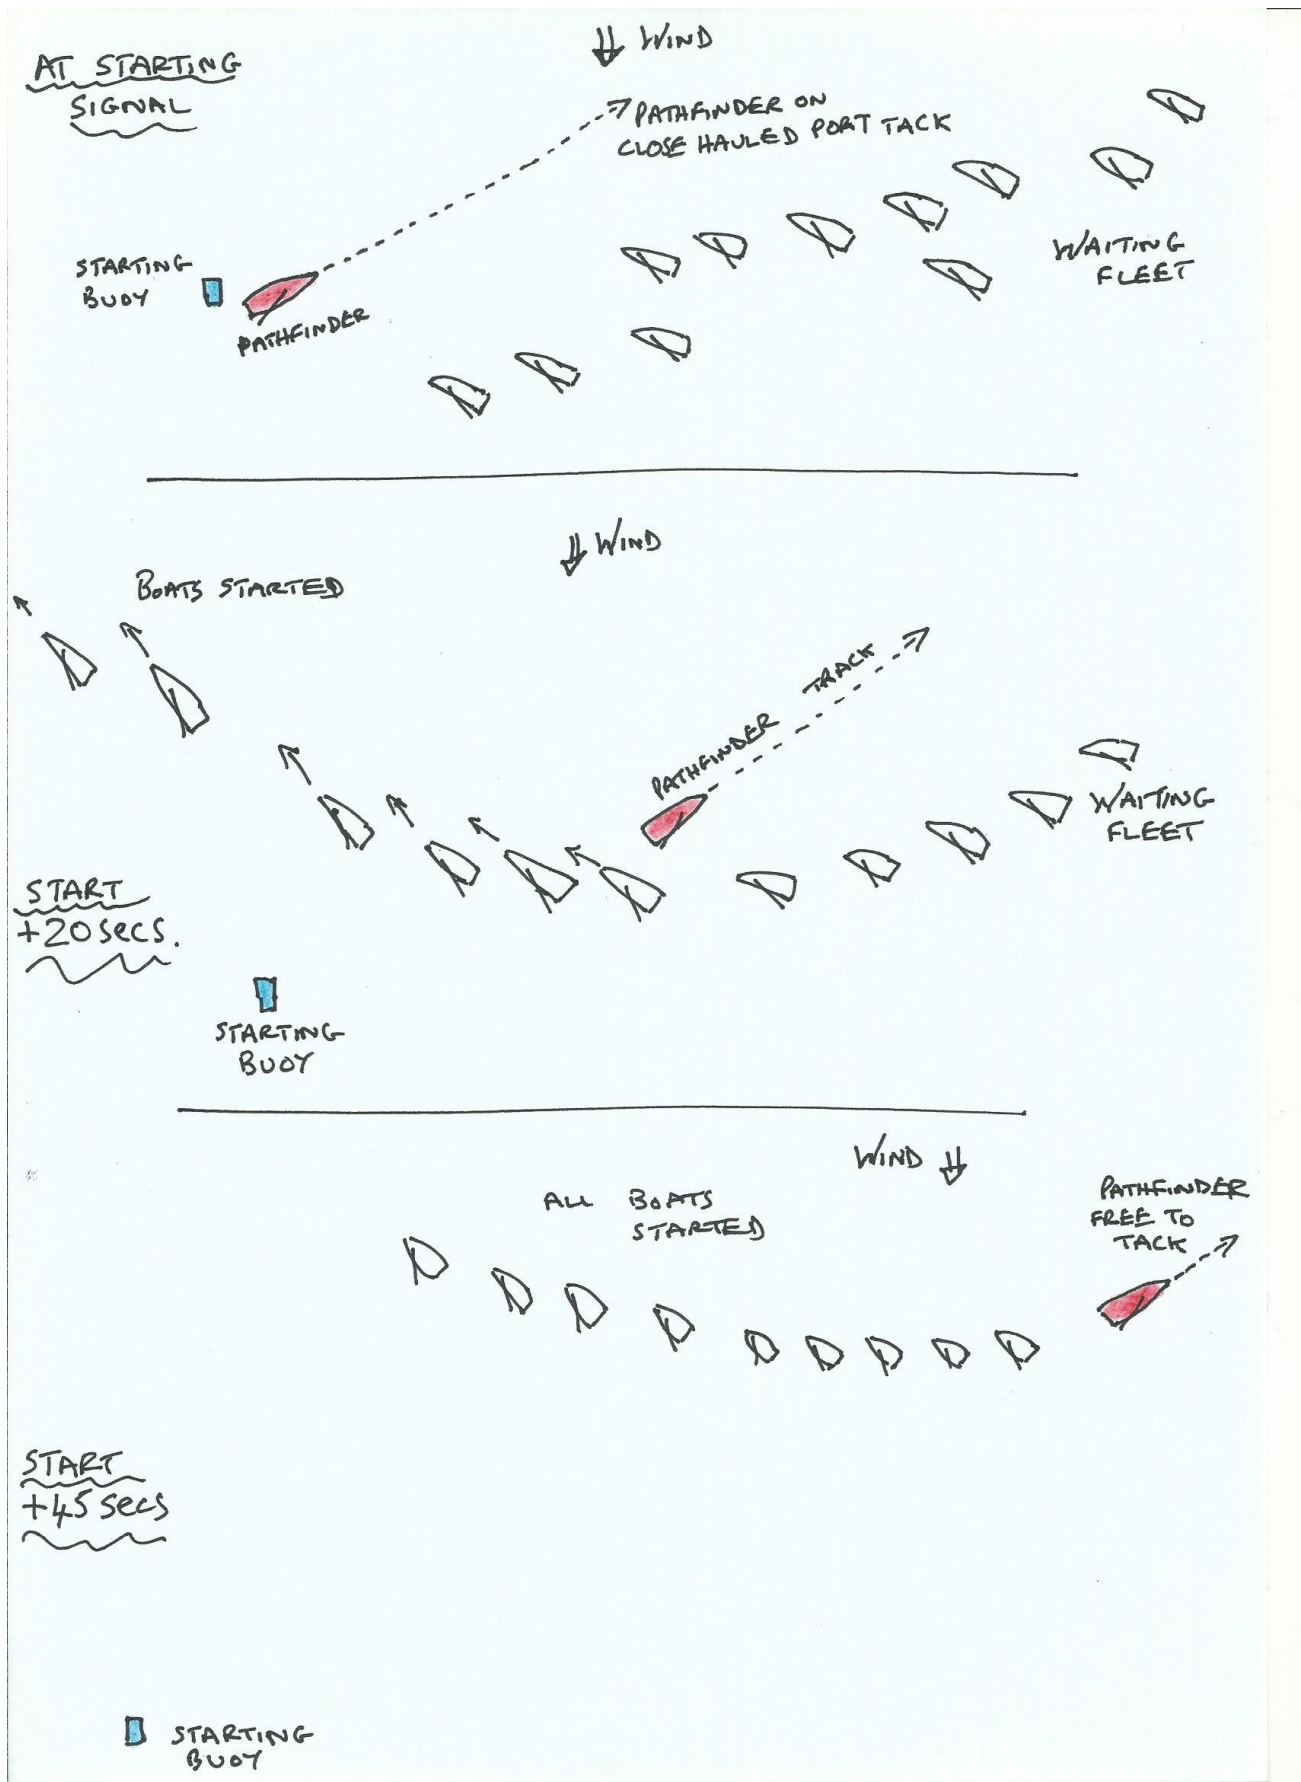 AT STARTING
SIGNAL
WIND
PATHFINDER ON
CLOSE HAULED PORT TACK
STARTING
BUOY
PATHFINDER
WAITING
FLEET
WIND
BOATS STARTED
PATHFINDER TRACK
WAITING
FLEET
START
+20 secs.
STARTING
BUOY
WIND
ALL BOATS
STARTED
PATHFINDER
FREE TO
TACK
START
+45 secs
STARTING
BUOY